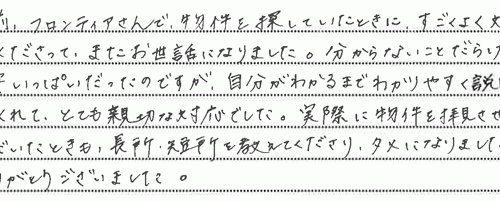 、フロンティアさんで、物件を探していたときに、すごくよく
くださって、またお世話になりました。分からないことだらけ
いっぱいだったのですが、自分がわかるまでわかりやすく説
くれて、とても親切な対応でした。実際に物件を拝見させ
だいたときも、長所・短所を教えてくださり、タメになりました
がとうございました。